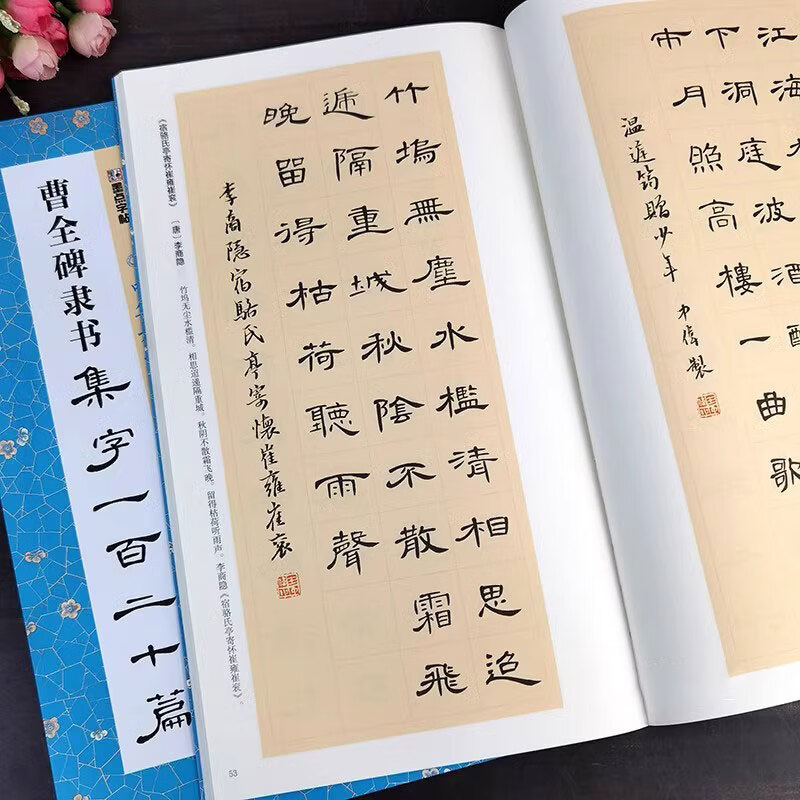 江海
下洞庭波酒酣
市月照高樓一曲歌
溫庭筠贈少年
竹塢無塵水檻清相思迢
遞隔重城秋陰不散霜飛
晚留得枯荷聽雨聲
李商隱宿駱氏亭寄懷崔雍崔袞
《宿骆氏亭寄怀崔雍崔衮》 〔唐〕李商隐
竹坞无尘水槛清。相思迢递隔重城。秋阴不散霜飞晚。留得枯荷听雨声。李商隐《宿骆氏亭寄怀崔雍崔衮》。
53
墨点字帖
曹全碑隶书集字一百二十篇